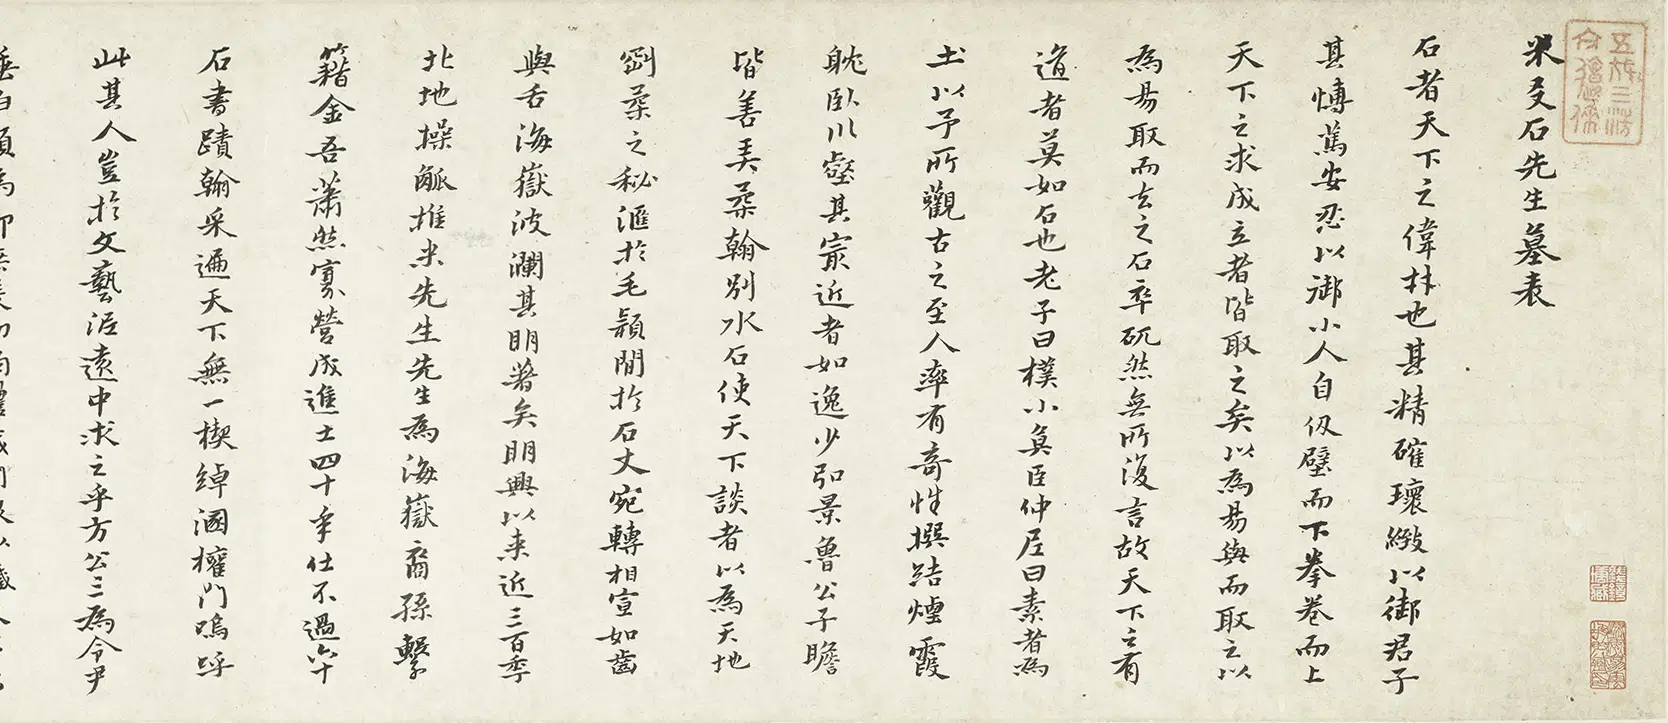 米友石先生墓表
石者天下之偉材也其精確瓌緻以御君子
其愽蒿安忍以御小人自伋壁而下拳卷而上
天下之求成立者皆取之矣以為易與而取之以
為易取而去之石卒矹然無所復言故天下之有
道者莫如石也老子曰樸小莫臣仲尼曰素者為
土以予所觀古之至人率有奇性撰結煙霞
躭臥川壑其㝡近者如逸少弘景魯公子瞻
皆善美柔翰別水石使天下談者以為天地
剛柔之秘滙於毛穎閒於石丈宛轉相宣如齒
與舌海嶽波瀾其明著矣明興以来近三百季
北地操觚推米先生先生為海嶽裔孫繫
籍金吾蕭然寡營成進士四十年仕不過
石書蹟翰采遍天下無一楔綽
此其人豈於文藝
中求之乎方公三為令尹